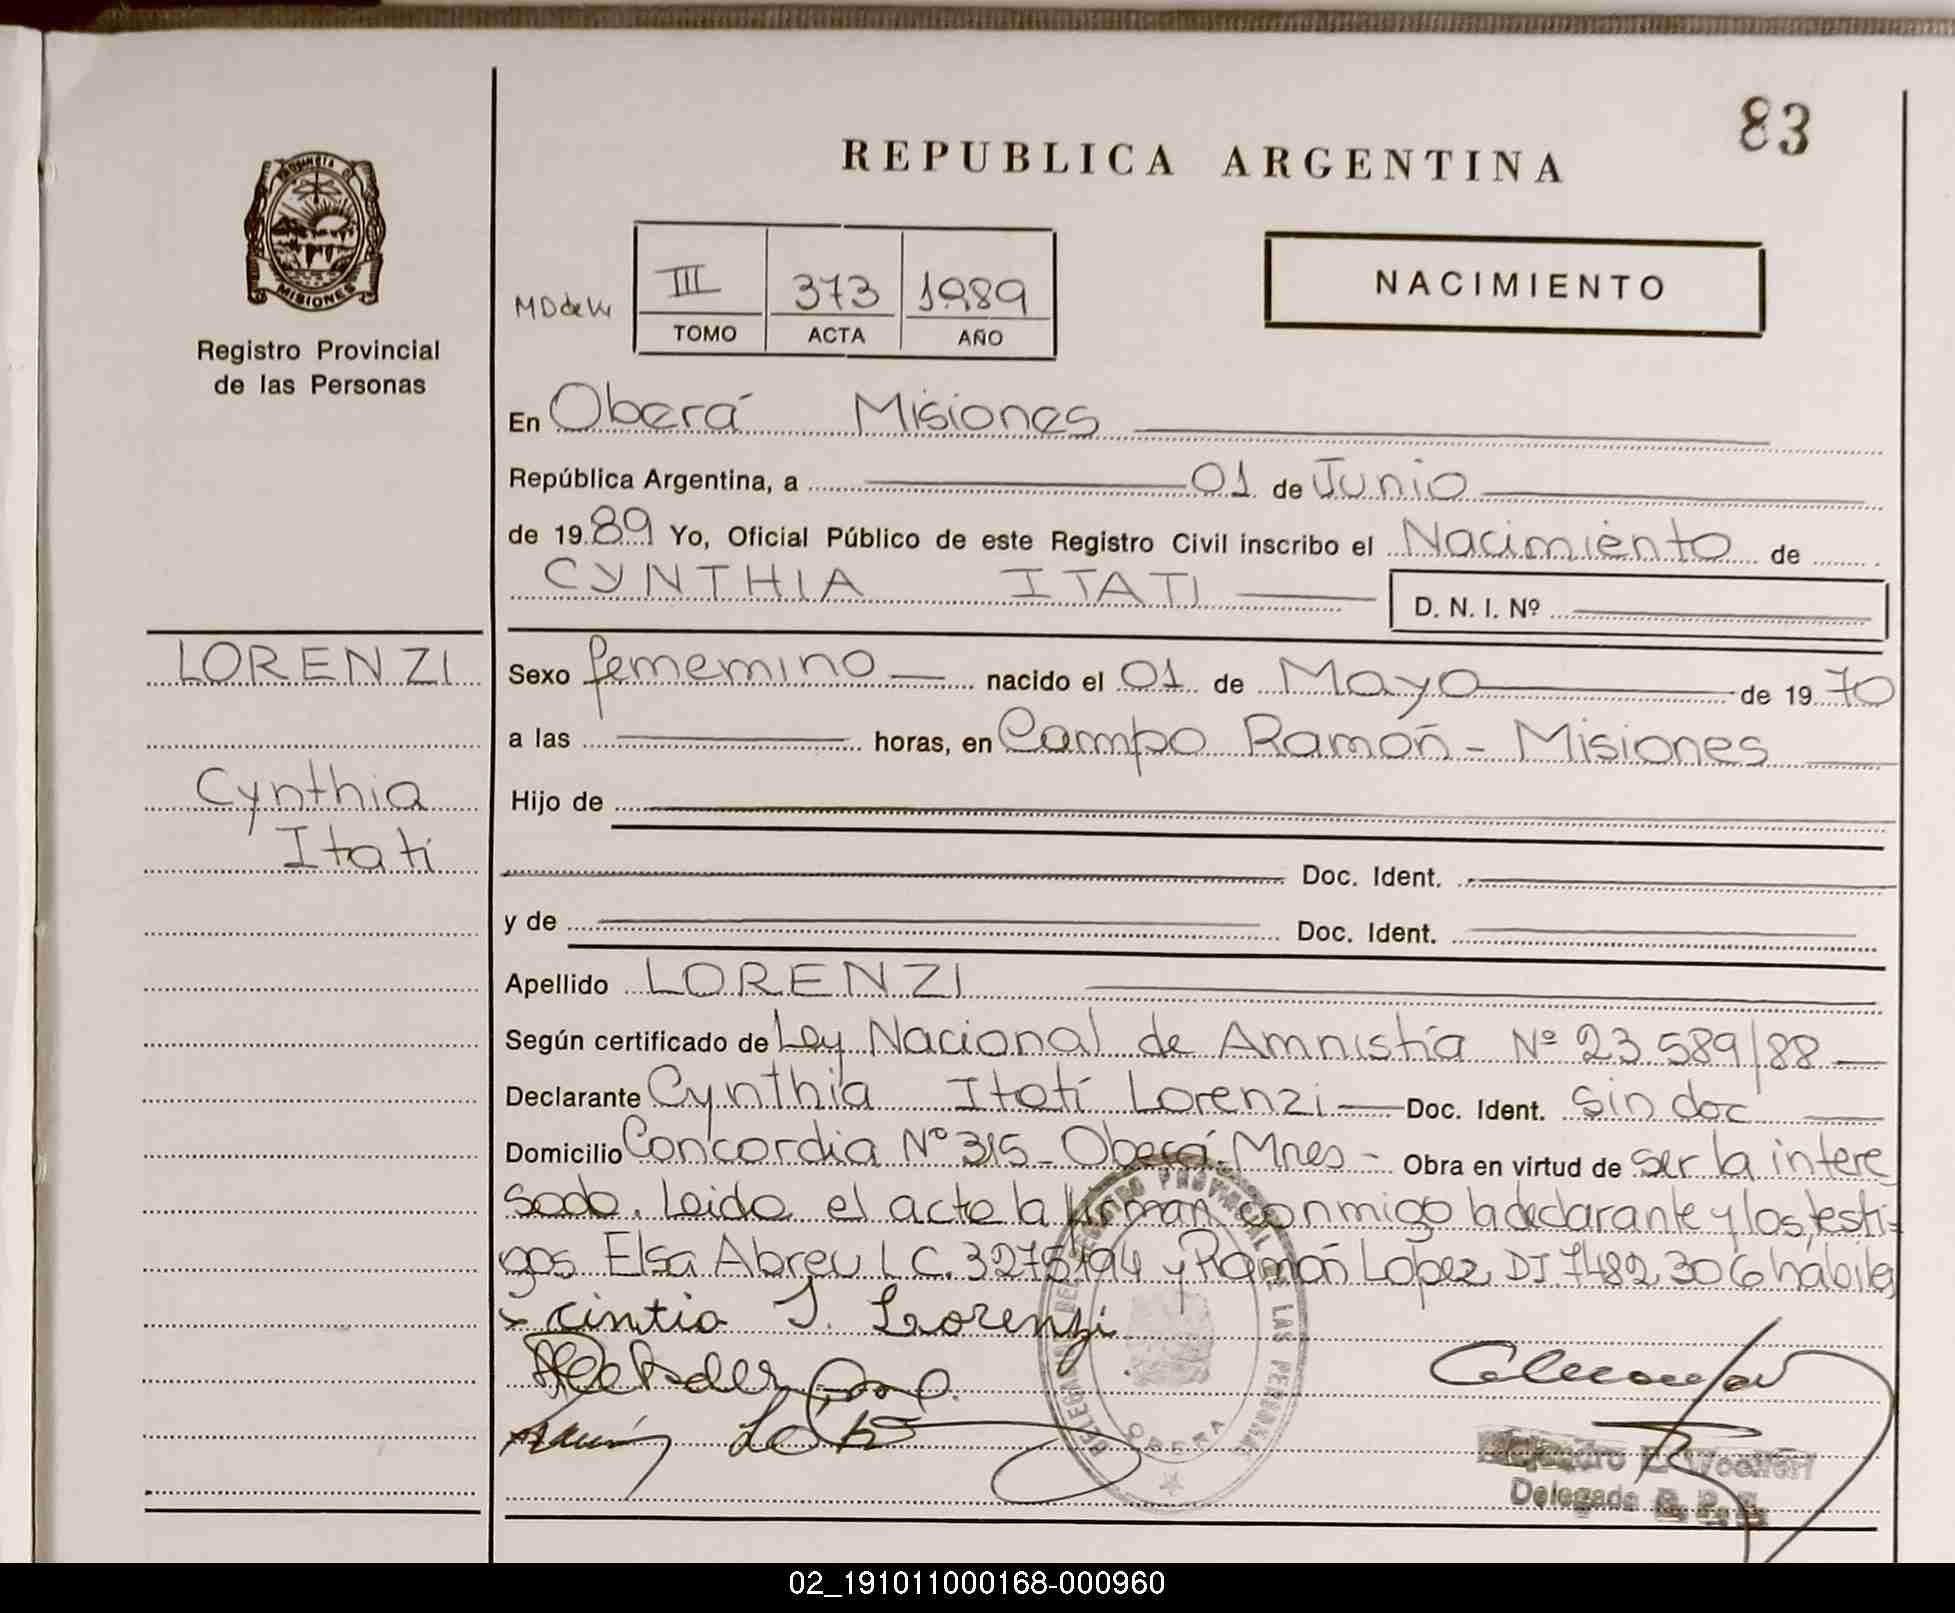 83
REPUBLICA ARGENTINA
PROVINCIA
MISIONES
Registro Provincial
de las Personas
III 373 1989
TOMO ACTA AÑO
NACIMIENTO
En Oberá Misiones
República Argentina, a 01 de Junio
de 1989 Yo, Oficial Público de este Registro Civil inscribo el Nacimiento de
CYNTHIA ITATI D. N. I. Nº
LORENZI
Cynthia
Itatí
Sexo fememino nacido el 01 de Mayo de 1970
a las horas, en Campo Ramón - Misiones
Hijo de
Doc. Ident.
y de Doc. Ident.
Apellido LORENZI
Según certificado de Ley Nacional de Amnistía Nº 23589/88
Declarante Cynthia Itatí Lorenzi Doc. Ident. sin doc
Domicilio Concordia Nº 315 - Oberá - Mnes - Obra en virtud de ser la intere
sada. Leida el acta la firman conmigo la declarante y los testi-
gos Elsa Abreu L C. 3275194 y Ramón Lopez DI 7482306 hábiles
x cintia I. Lorenzi
DELEGACION DEL REGISTRO PROVINCIAL DE LAS PERSONAS
OBERA
Delegado R. P. P.
02_191011000168-000960